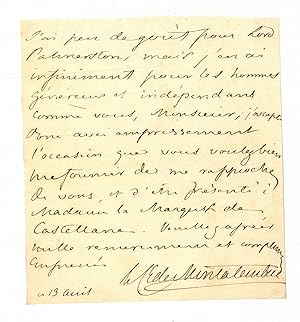 J'ai peu de goût pour Lord
Palmerston, mais j'en ai
infiniment pour les hommes
généreux et indépendans
comme vous, Monsieur, j'accepte
donc avec empressement
l'occasion que vous voulez bien
me fournir de me rapprocher
de vous, et d'être présenté à
Madame la Marquise de
Castellane. Veuillez agréer
mille remerciemens et complimens
empressés
le Cte de Montalembert
ce 13 avril